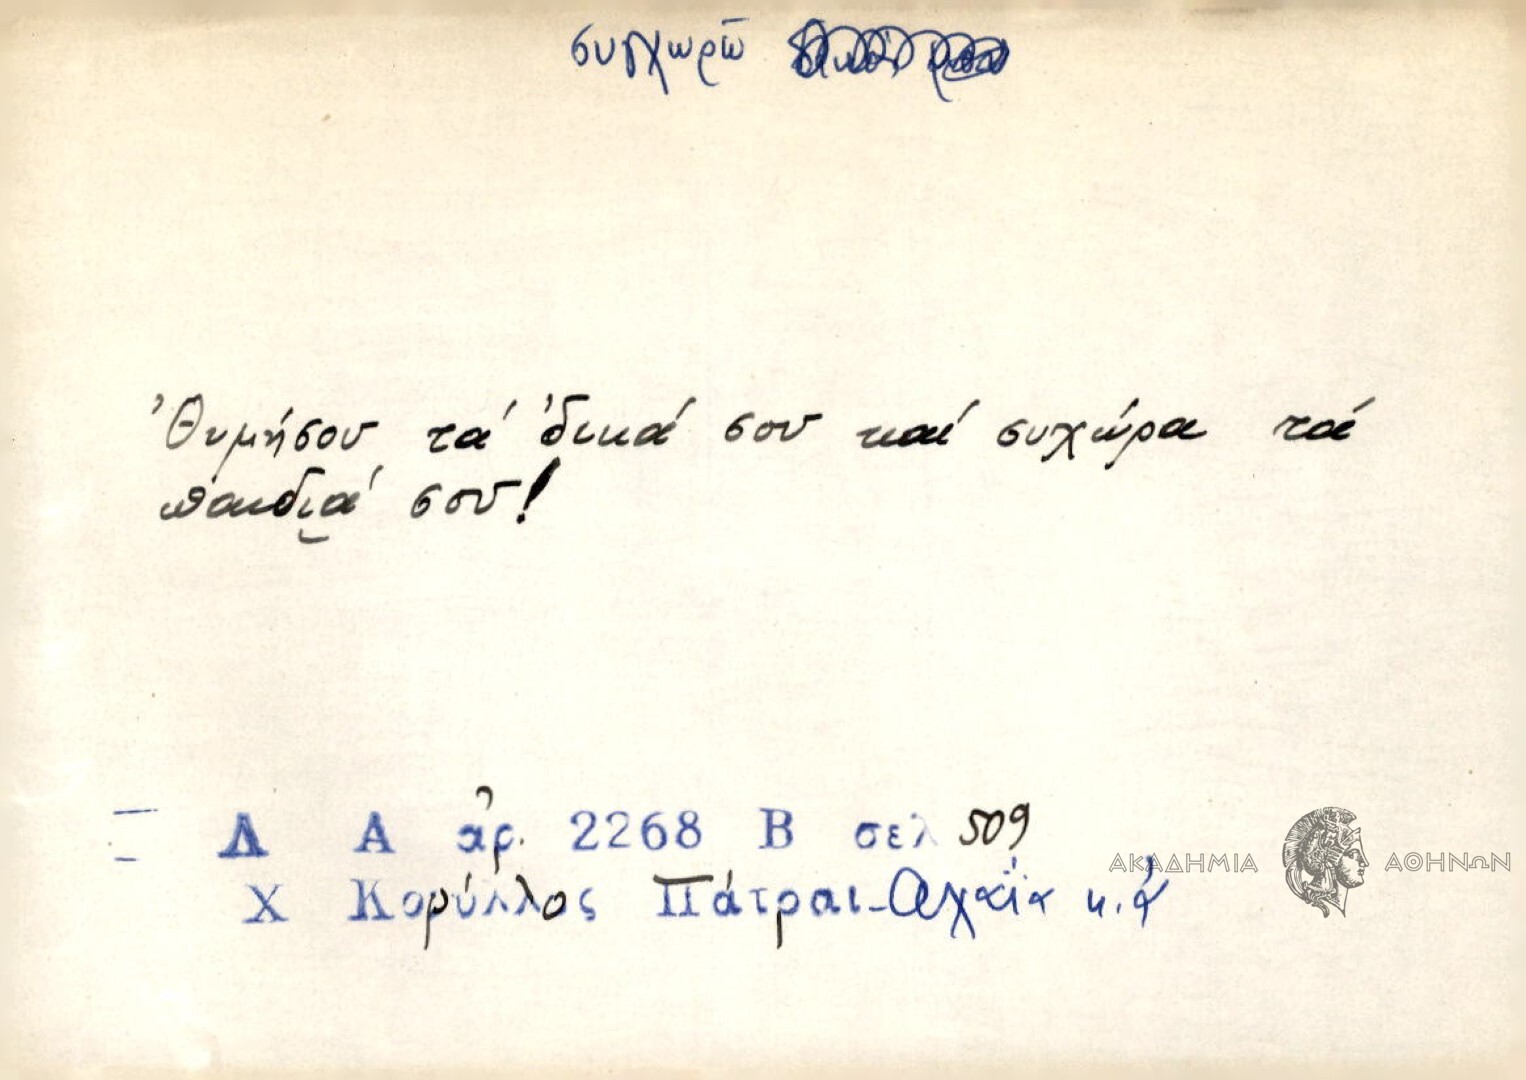 συγχωρῶ
Ὀθυμήσου τά 'δικά σου καί συχώρα τά
παιδιά σου!
Λ Α ἀρ. 2268 Β σελ 509
Χ Κορύλλος Πάτραι-Ἀχαΐα κ.ἀ
ΑΚΑΔΗΜΙΑ ΑΘΗΝΩΝ